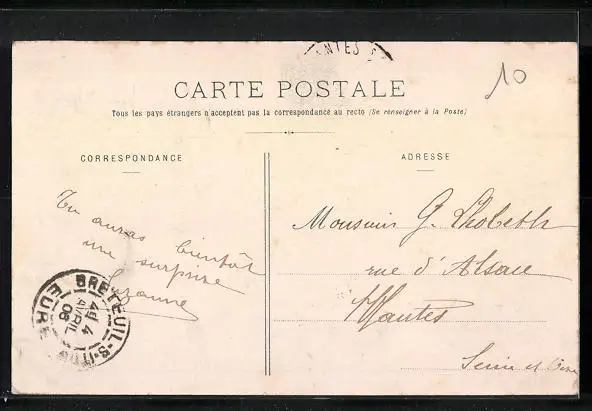 NTES
10
CARTE POSTALE
Tous les pays étrangers n'acceptent pas la correspondance au recto (Se renseigner à la Poste)
CORRESPONDANCE
Tu auras bientôt
une surprise
Suzanne
BRETEUIL-S-ITON
4 AVRIL 08
EURE
ADRESSE
Monsieur G.
rue d'Alsace
Mantes
Seine et Oise